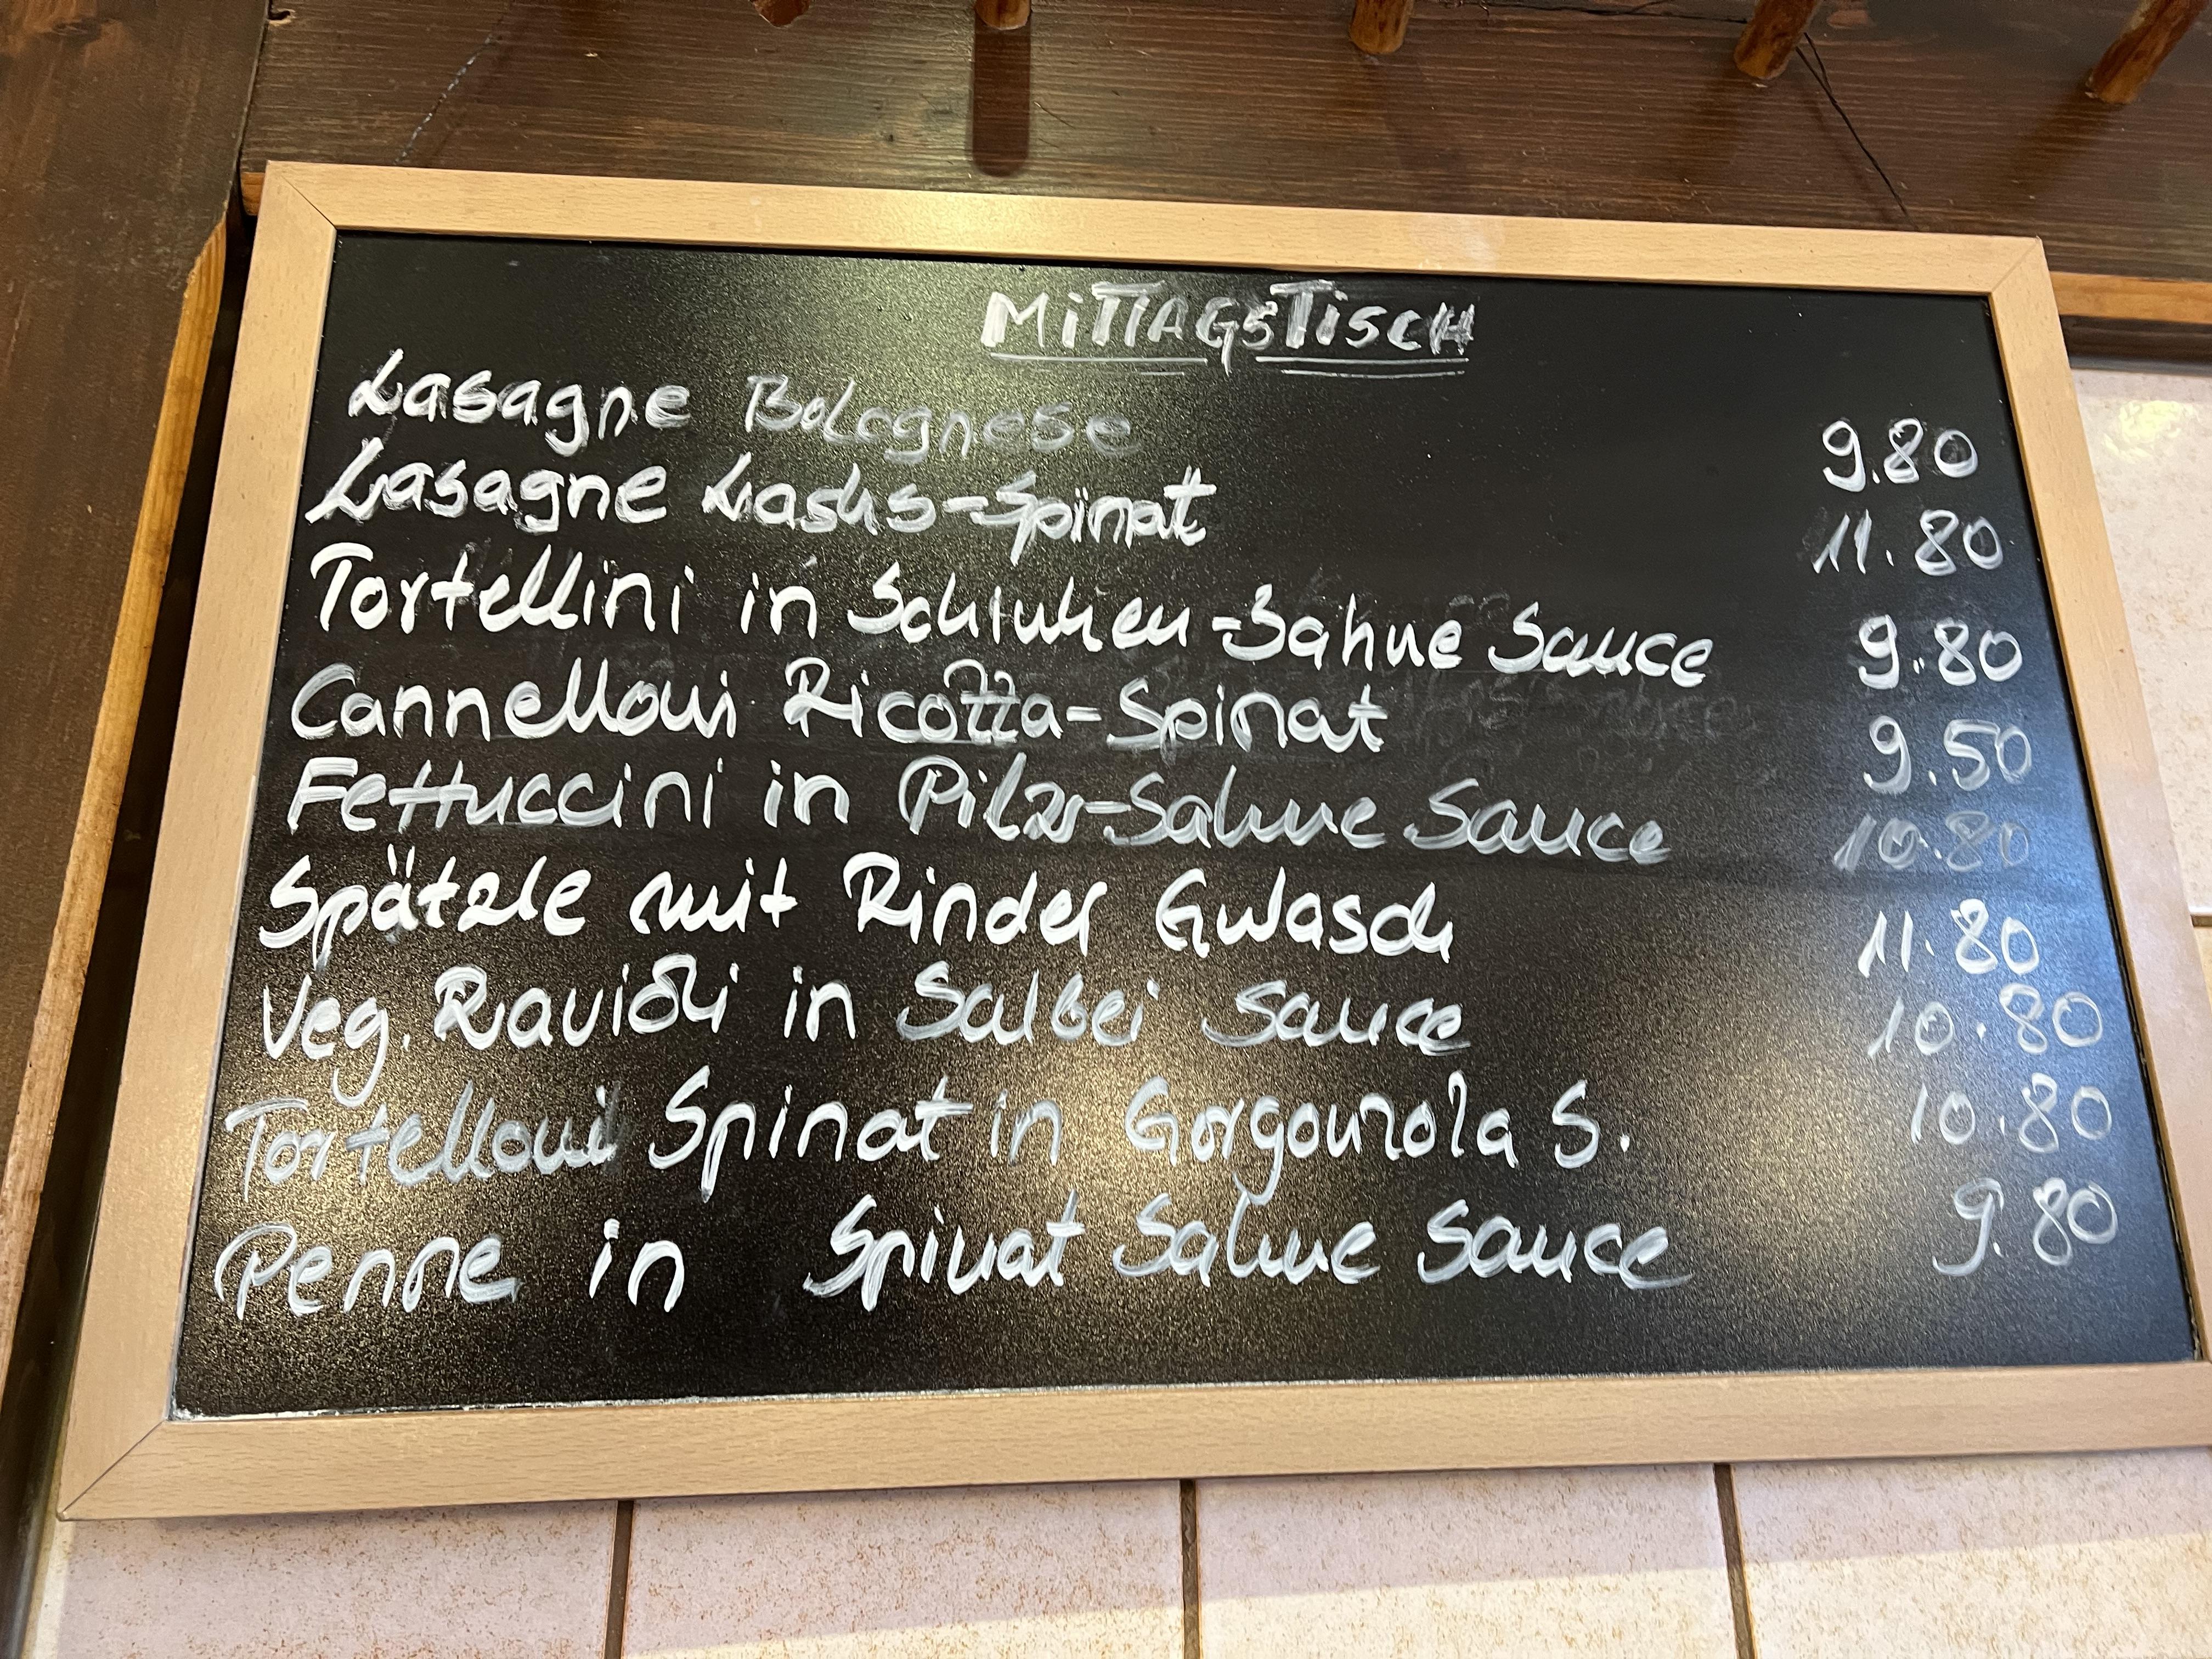 MiTTAGSTISCH
Lasagne Bolognese 9.80
Lasagne Lachs-Spinat 11.80
Tortellini in Schinken-Sahne Sauce 9.80
Cannelloni Ricotta-Spinat 9.50
Fettuccini in Pilz-Sahne Sauce 10.80
Spätzle mit Rinder Gulasch 11.80
Veg. Ravioli in Salbei Sauce 10.80
Tortelloni Spinat in Gorgonzola S. 10.80
Penne in Spinat Sahne Sauce 9.80